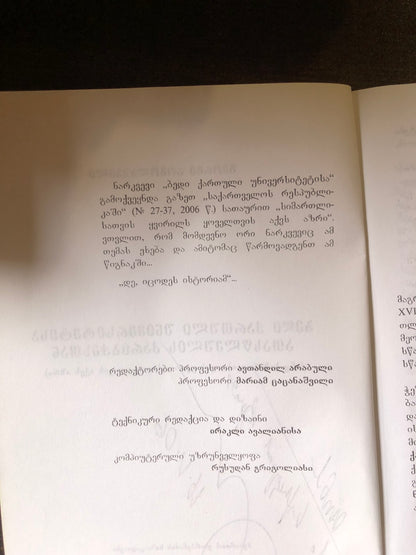 ნარკვევი „ბედი ქართული უნივერსიტეტისა“
გამოქვეყნდა გაზეთ „საქართველოს რესპუბლი-
კაში“ (№ 27-37, 2006 წ.) სათაურით „სიმართლი-
სათვის ყვირილს ყოველთვის აქვს აზრი“.
ვთვლით, რომ მომდევნო ორი ნარკვევიც ამ
თემას ეხება და ამიტომაც წარმოვადგენთ ამ
წიგნაკში...
„დე, იცოდეს ისტორიამ“...
რედაქტორები: პროფესორი ავთანდილ არაბული
პროფესორი მარიამ ცაცანაშვილი
ტექნიკური რედაქცია და დიზაინი
ირაკლი ავალიანისა
კომპიუტერული უზრუნველყოფა
რუსუდან გრიგოლიასი
მაგრ
XVI
თლ
მეო
სწა
სწა
ჭეშ
ბა
და
ის
მი
ქა
ქა
გა